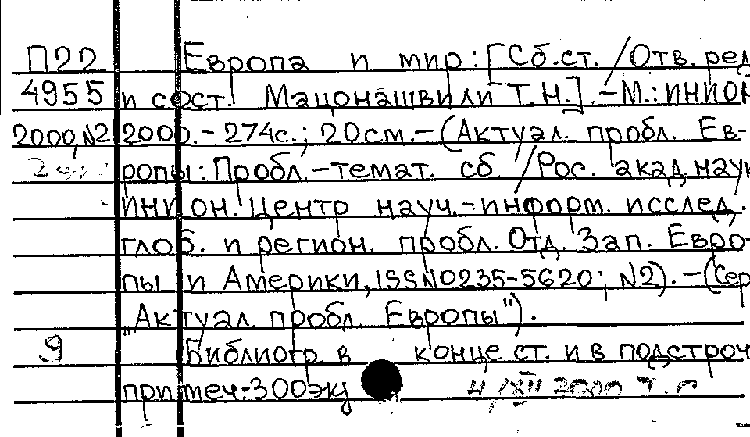 П22 Европа и мир: [Сб.ст. /Отв.ред
4955 и сост. Мацонашвили Т.Н.]. -М.: ИНИОН
2000,N2 2000.- 274с.; 20см.-(Актуал. пробл. Ев-
ропы: Пробл.-темат. сб. /Рос. акад.наук
ИНИОН. Центр науч.-информ. исслед.
глоб. и регион. пробл. Отд. Зап. Евро-
пы и Америки, ISSN0235-5620; N2).-(Сер
"Актуал. пробл. Европы").
9 Библиогр в конце ст. и в подстроч
примеч-300экз